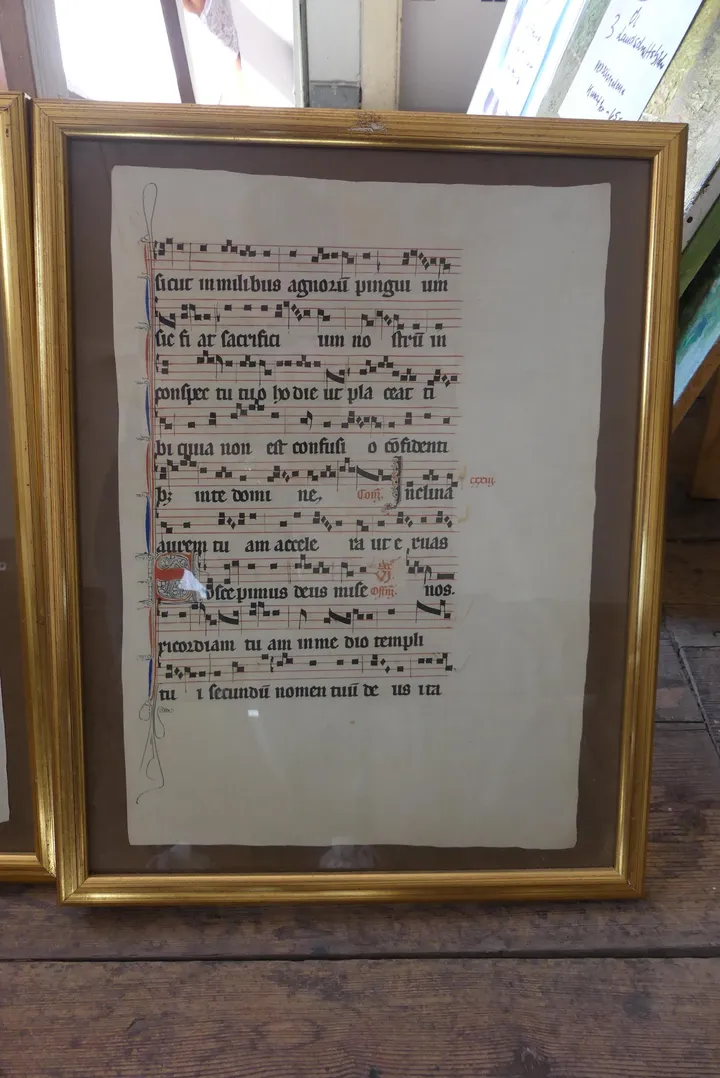 sicut in milibus agnorū pingui um
sic fi at sacrifici um no strū in
conspec tu tuo ho die ut pla ceat ti
bi quia non est confusi o cōfidenti
bꝫ inte domi ne.
Com̄.
nclina
cxxiij.
aurem tu am accele ra ut e ruas
nos.
Offm̄.
Suscepimus deus mise
ricordiam tu am in me dio templi
tu i secundū nomen tuū de us ita
3